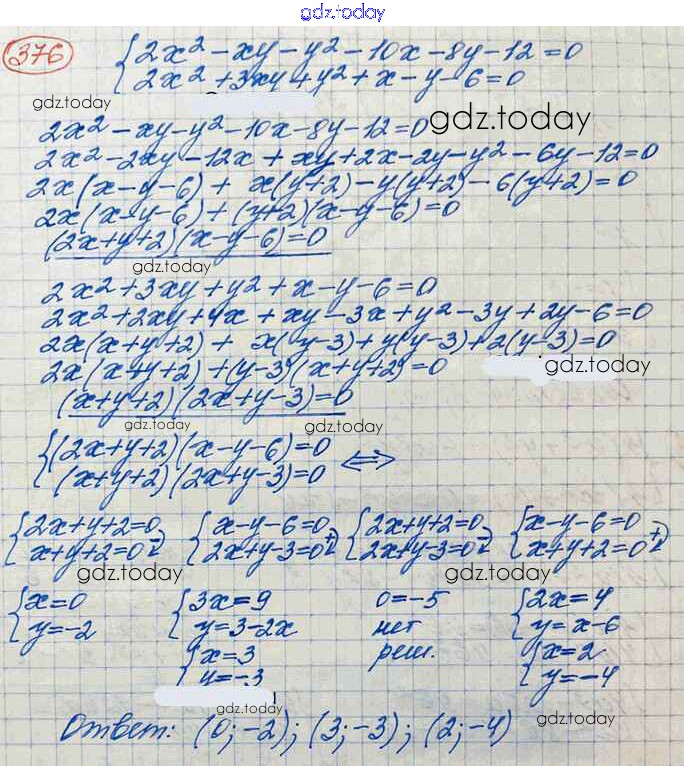 gdz.today
376
2x² - xy - y² - 10x - 8y - 12 = 0
2x² + 3xy + y² + x - y - 6 = 0
gdz.today
2x² - xy - y² - 10x - 8y - 12 = 0 gdz.today
2x² - 2xy - 12x + xy + 2x - 2y - y² - 6y - 12 = 0
2x(x - y - 6) + x(y+2) - y(y+2) - 6(y+2) = 0
2x(x - y - 6) + (y+2)(x - y - 6) = 0
(2x + y + 2)(x - y - 6) = 0
gdz.today
2x² + 3xy + y² + x - y - 6 = 0
2x² + 2xy + 4x + xy - 3x + y² - 3y + 2y - 6 = 0
2x(x + y + 2) + x(y-3) + y(y-3) + 2(y-3) = 0
2x(x + y + 2) + (y-3)(x + y + 2) = 0 gdz.today
(x + y + 2)(2x + y - 3) = 0
gdz.today gdz.today
{(2x + y + 2)(x - y - 6) = 0
(x + y + 2)(2x + y - 3) = 0 ⇔
{2x + y + 2 = 0 {x - y - 6 = 0 {2x + y + 2 = 0 {x - y - 6 = 0
x + y + 2 = 0 2x + y - 3 = 0 2x + y - 3 = 0 x + y + 2 = 0
gdz.today gdz.today
{x = 0 {3x = 9 0 = -5 {2x = 4
y = -2 y = 3 - 2x нет y = x - 6
{x = 3 реш. {x = 2
y = -3 y = -4
gdz.today
Ответ: (0; -2); (3; -3); (2; -4) gdz.today